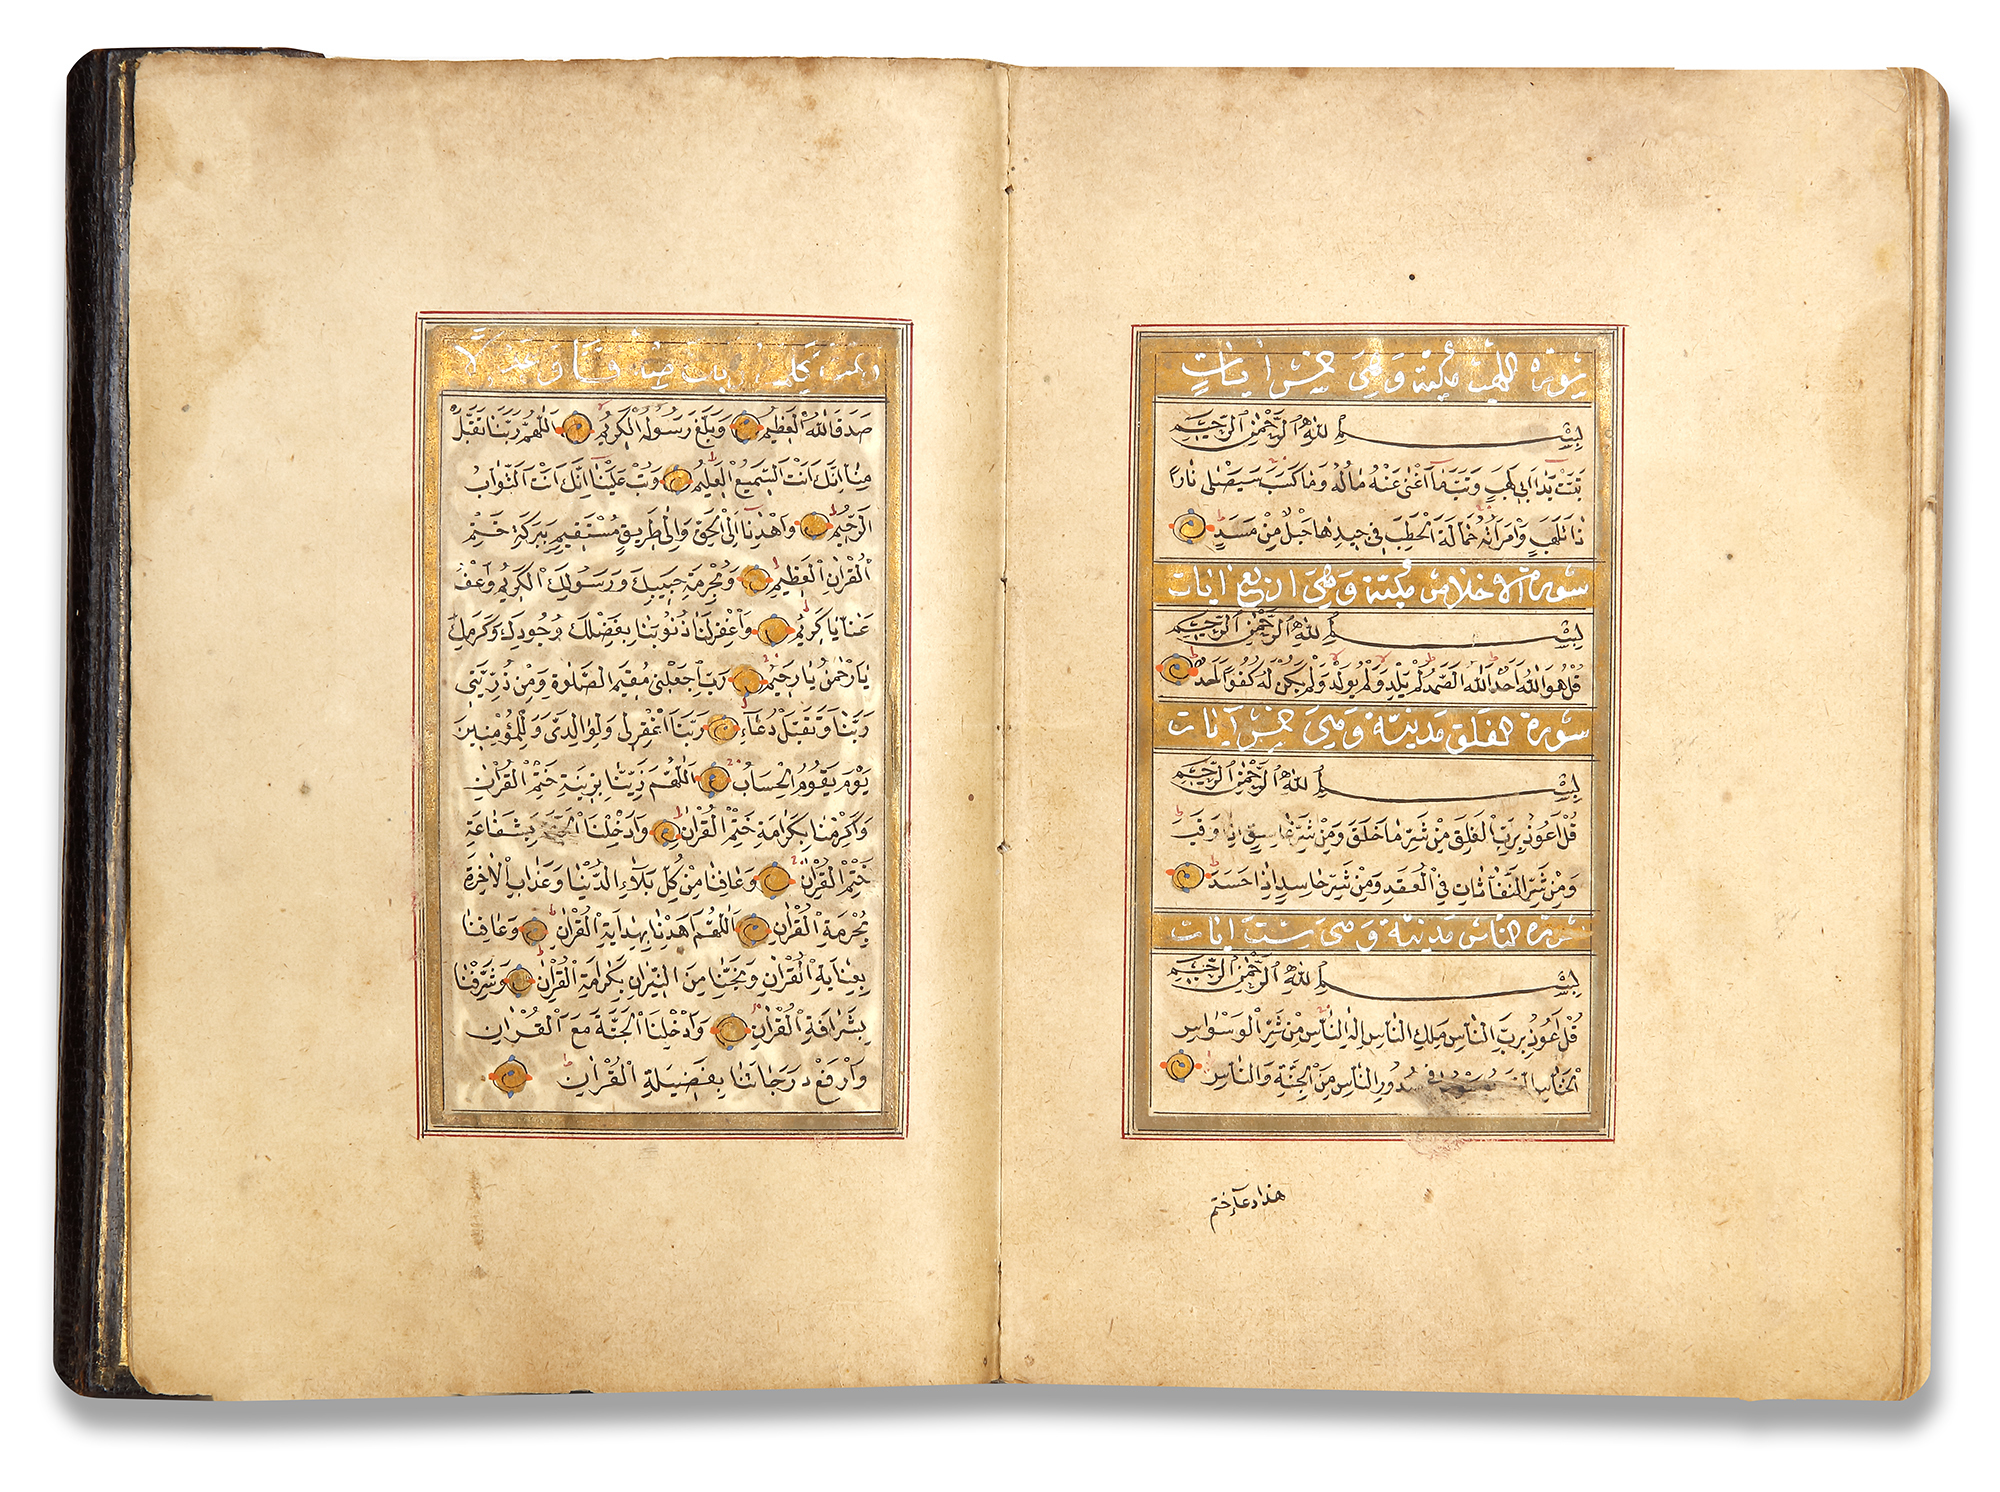 سورة اللهب مكية وهي خمس ايات
بِسْمِ اللهِ الرَّحْمٰنِ الرَّحِيمِ
تَبَّتْ يَدَا اَبِي لَهَبٍ وَتَبَّ مَا اَغْنٰى عَنْهُ مَالُهُ وَمَا كَسَبَ سَيَصْلٰى نَارًا
ذَاتَ لَهَبٍ وَامْرَاَتُهُ حَمَّالَةَ الْحَطَبِ فِي جِيدِهَا حَبْلٌ مِنْ مَسَدٍ
سورة الاخلاص مكية وهي اربع ايات
بِسْمِ اللهِ الرَّحْمٰنِ الرَّحِيمِ
قُلْ هُوَ اللهُ اَحَدٌ اَللهُ الصَّمَدُ لَمْ يَلِدْ وَلَمْ يُولَدْ وَلَمْ يَكُنْ لَهُ كُفُوًا اَحَدٌ
سورة الفلق مدنية وهي خمس آيات
بِسْمِ اللهِ الرَّحْمٰنِ الرَّحِيمِ
قُلْ اَعُوذُ بِرَبِّ الْفَلَقِ مِنْ شَرِّ مَا خَلَقَ وَمِنْ شَرِّ غَاسِقٍ اِذَا وَقَبَ
وَمِنْ شَرِّ النَّفَّاثَاتِ فِي الْعُقَدِ وَمِنْ شَرِّ حَاسِدٍ اِذَا حَسَدَ
سورة الناس مدنية وهي ست ايات
بِسْمِ اللهِ الرَّحْمٰنِ الرَّحِيمِ
قُلْ اَعُوذُ بِرَبِّ النَّاسِ مَلِكِ النَّاسِ اِلٰهِ النَّاسِ مِنْ شَرِّ الْوَسْوَاسِ
الْخَنَّاسِ صُدُورِ النَّاسِ مِنَ الْجِنَّةِ وَالنَّاسِ
هذا دعاء ختم
صدقا وعدلا
صَدَقَ اللهُ الْعَظِيمُ وَبَلَّغَ رَسُولُهُ الْكَرِيمُ اَللّٰهُمَّ رَبَّنَا تَقَبَّلْ
مِنَّا اِنَّكَ اَنْتَ السَّمِيعُ الْعَلِيمُ وَتُبْ عَلَيْنَا اِنَّكَ اَنْتَ التَّوَّابُ
الرَّحِيمُ وَاهْدِنَا اِلَى الْحَقِّ وَاِلٰى طَرِيقٍ مُسْتَقِيمٍ بِبَرَكَةِ خَتْمِ
الْقُرْاٰنِ الْعَظِيمِ وَبِحُرْمَةِ حَبِيبِكَ وَرَسُولِكَ الْكَرِيمِ وَاعْفُ
عَنَّا يَا كَرِيمُ وَاغْفِرْ لَنَا ذُنُوبَنَا بِفَضْلِكَ وَجُودِكَ وَكَرَمِكَ
يَا رَحْمٰنُ يَا رَحِيمُ رَبِّ اجْعَلْنِي مُقِيمَ الصَّلٰوةِ وَمِنْ ذُرِّيَّتِي
رَبَّنَا وَتَقَبَّلْ دُعَاءِ رَبَّنَا اغْفِرْلِي وَلِوَالِدَيَّ وَلِلْمُؤْمِنِينَ
يَوْمَ يَقُومُ الْحِسَابُ اَللّٰهُمَّ زَيِّنَّا بِزِينَةِ خَتْمِ الْقُرْاٰنِ
وَاَكْرِمْنَا بِكَرَامَةِ خَتْمِ الْقُرْاٰنِ وَاَدْخِلْنَا الْجَنَّةَ بِشَفَاعَةِ
خَتْمِ الْقُرْاٰنِ وَعَافِنَا مِنْ كُلِّ بَلَاءِ الدُّنْيَا وَعَذَابِ الْاٰخِرَةِ
بِحُرْمَةِ الْقُرْاٰنِ اَللّٰهُمَّ اهْدِنَا بِهِدَايَةِ الْقُرْاٰنِ وَعَافِنَا
بِعِنَايَةِ الْقُرْاٰنِ وَنَجِّنَا مِنَ النِّيرَانِ بِكَرَامَةِ الْقُرْاٰنِ وَشَرِّفْنَا
بِشَرَافَةِ الْقُرْاٰنِ وَاَدْخِلْنَا الْجَنَّةَ مَعَ الْقُرْاٰنِ
وَارْفَعْ دَرَجَاتِنَا بِفَضِيلَةِ الْقُرْاٰنِ